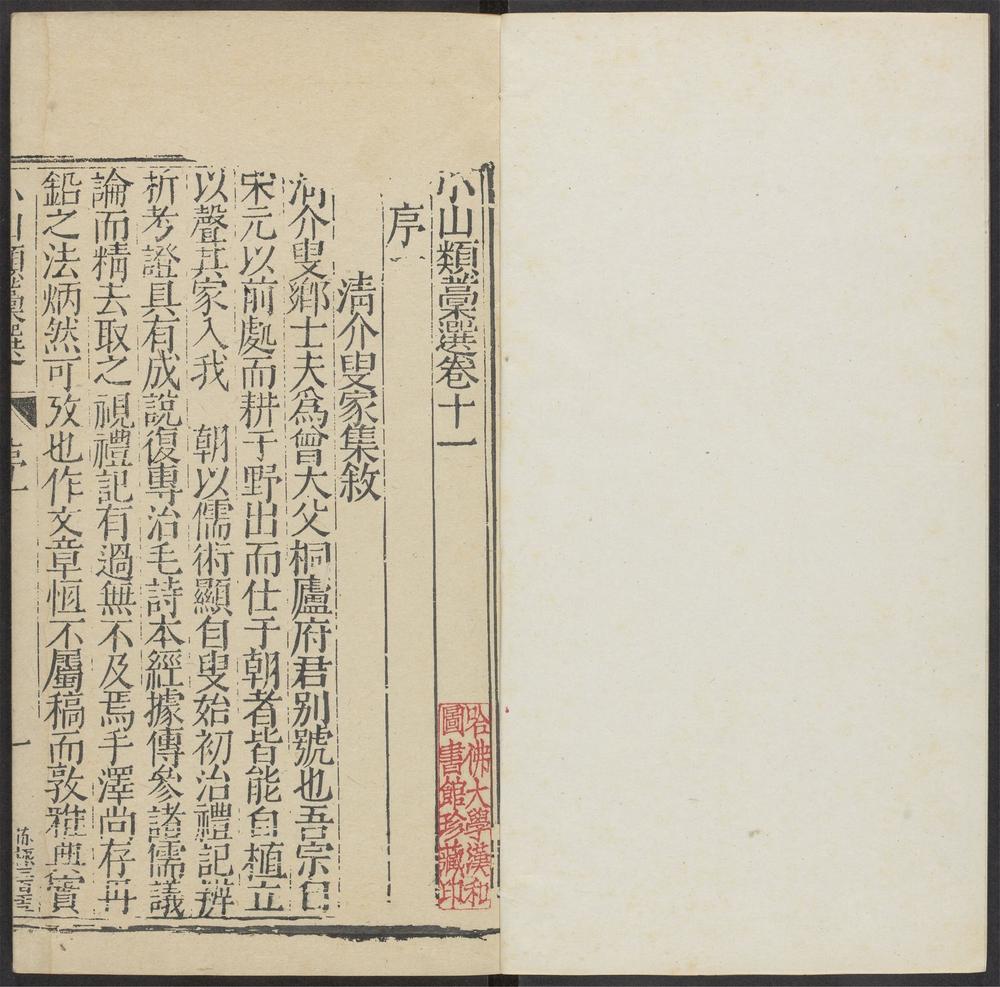 小山類藁選卷十一
哈佛大學漢和
圖書館珍藏印
序
清介叟家集敘
清介叟鄉士夫爲曾大父桐廬府君别號也吾宗自
宋元以前處而耕于野出而仕于朝者皆能自植立
以聲其家入我 朝以儒術顯自叟始初治禮記辨
析考證具有成說復專治毛詩本經據傳參諸儒議
論而精去取之視禮記有過無不及焉手澤尚存丹
鉛之法炳然可攷也作文章恒不屬稿而敦雅典實
小山類藁選 序一 一